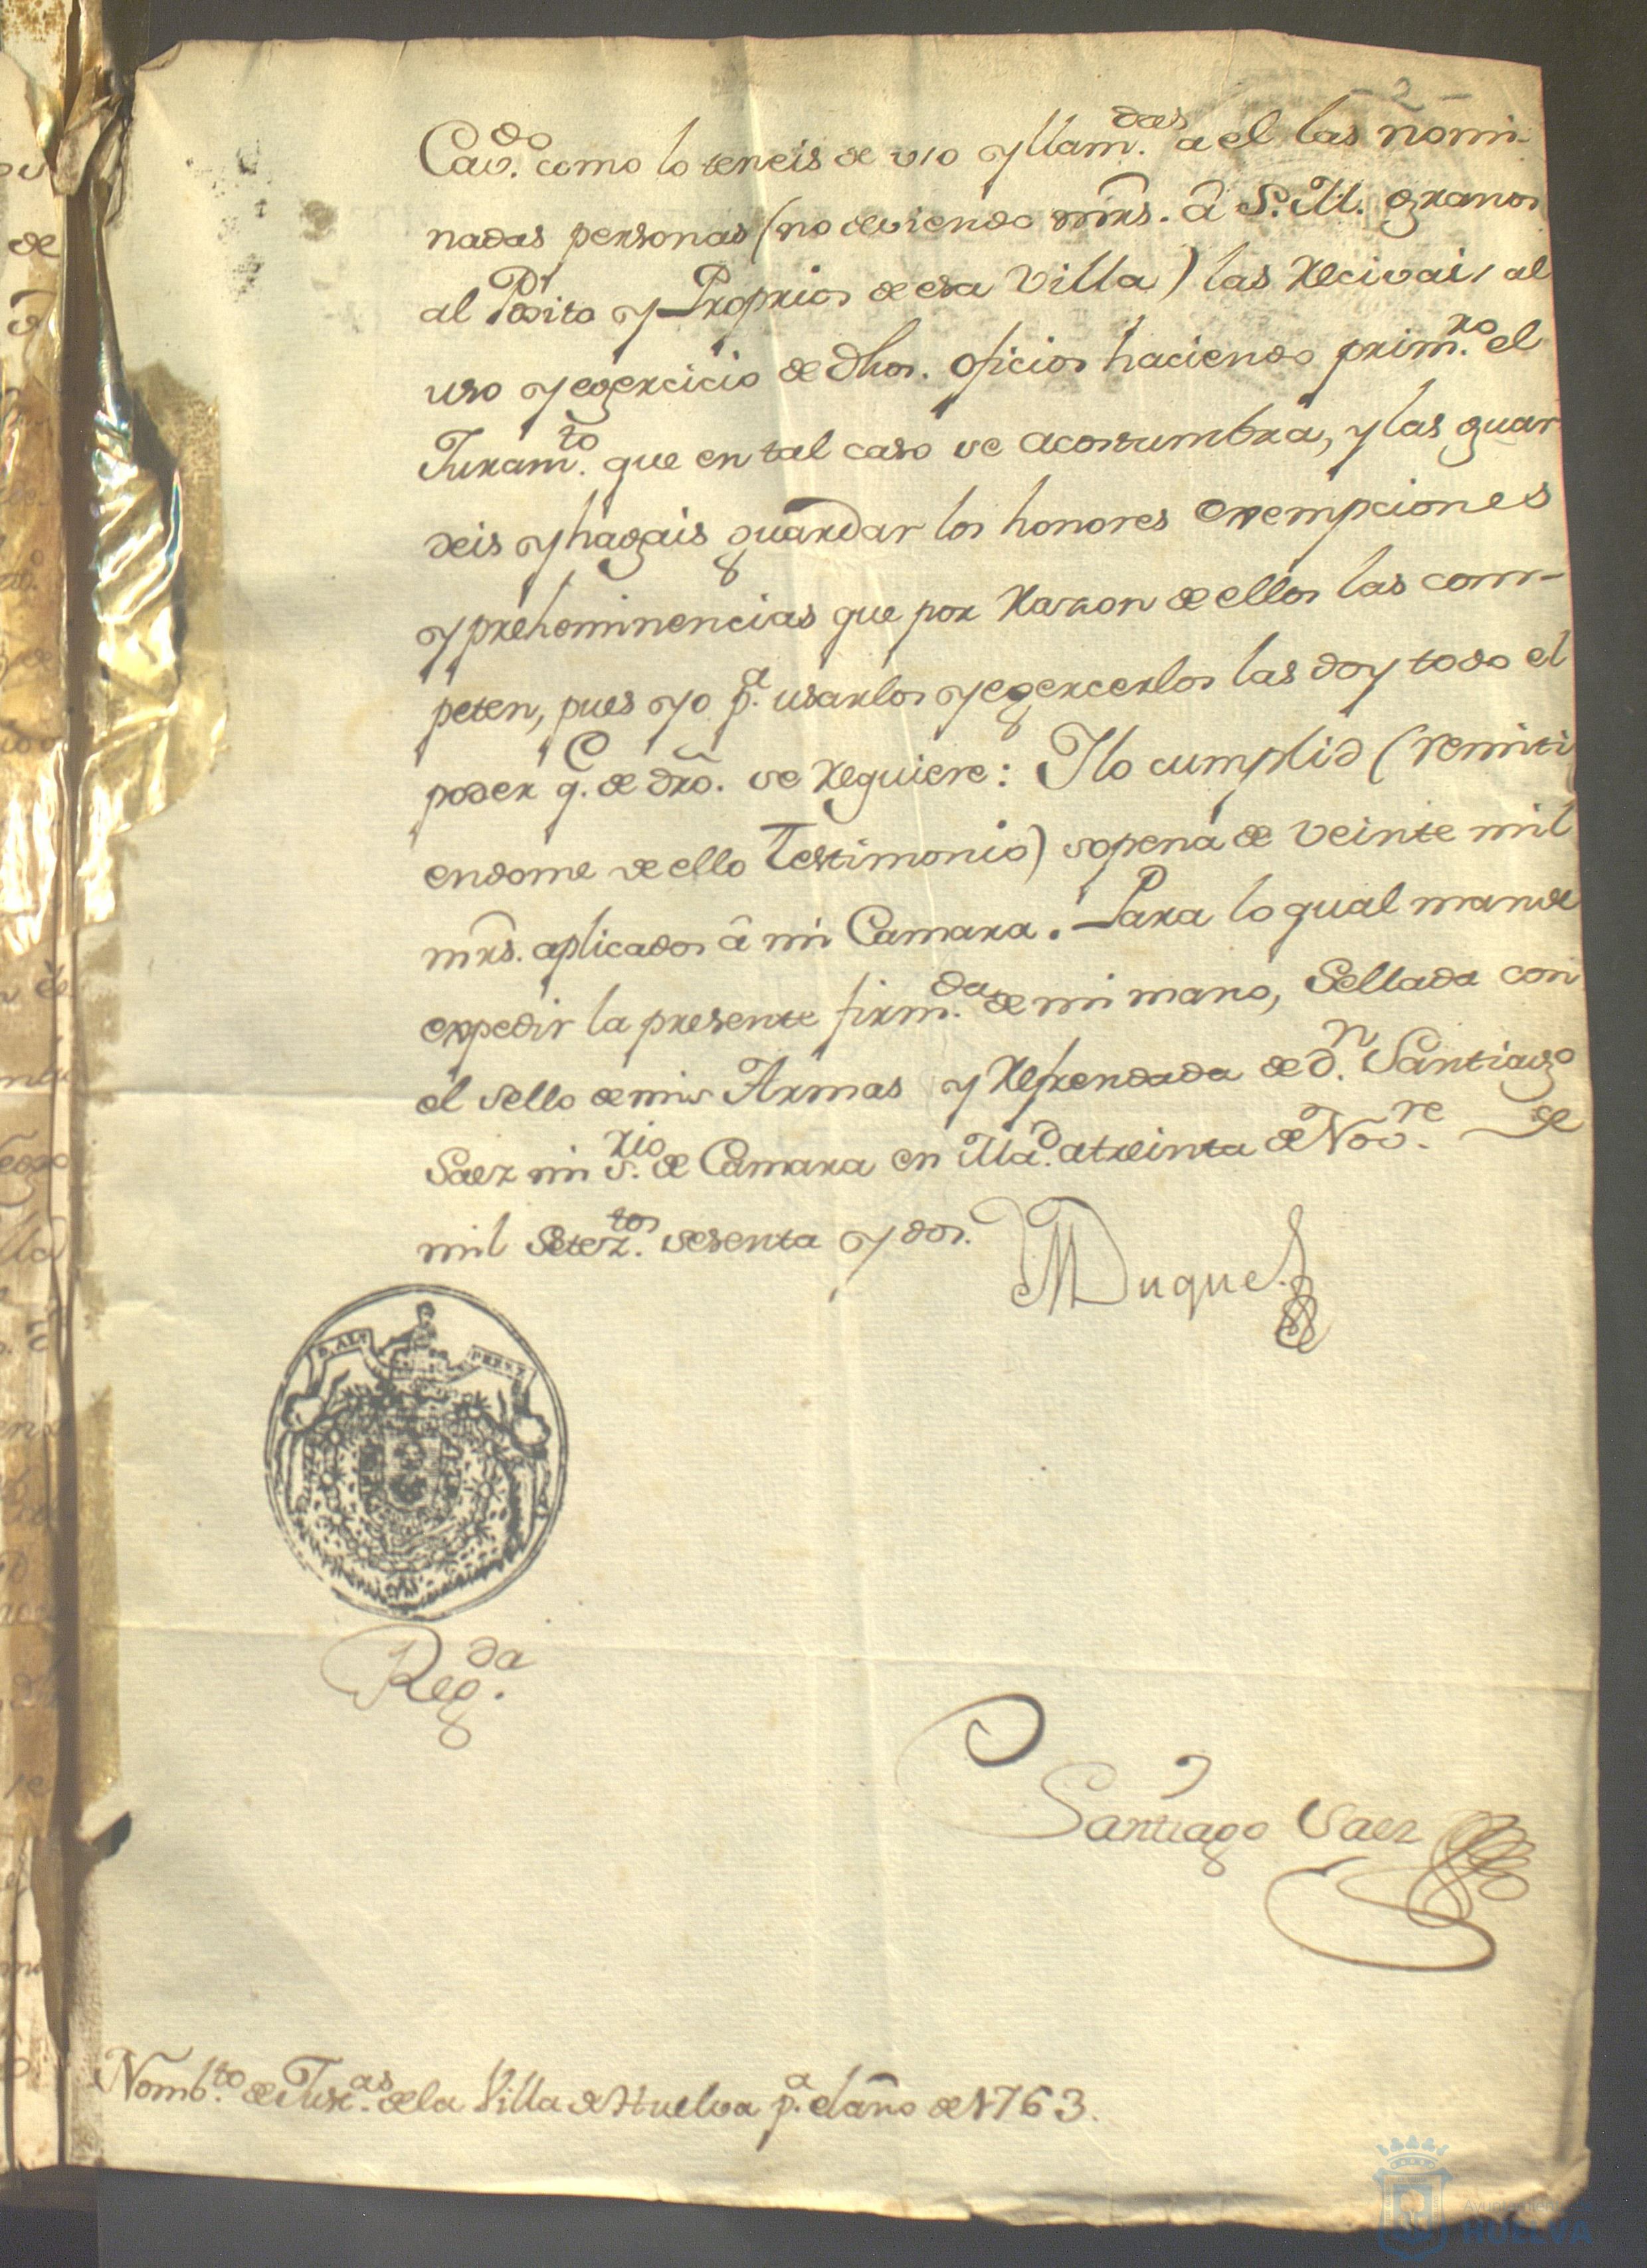 - 2 -
Cav.do como lo teneis de uso y llam.das a el las nomi-
nadas personas (no deviendo mrs. â S. M. granos
al Posito y Proprios de esa Villa) las Recivais al
uso y egercicio de dhos. oficios haciendo prim.ro el
Juram.to que en tal caso se acostumbra, y las guar
deis y hagais guardar los honores exempciones
y prehominencias que por Razon de ellos las com-
peten, pues yo p.a usarlos y egercerlos las doy todo el
poder q.e de dro. se Requiere: Ylo cumplid (remiti
endome de ello Testimonio) sopena de veinte mil
mrs. aplicados â mi Camara. Para lo qual mande
expedir la presente firm.da de mi mano, Sellada con
el sello de mis Armas y Refrendada de d.n Santiago
Saez mi S.rio de Camara en Mad.d a treinta de Nov.re de
mil Setez.tos sesenta y dos.
El Duque
D. ALV PEREZ
Reg.da
Santiago Saez
Nomb.to de Just.as de la Villa de Huelva p.a el año de 1763.
Ayuntamiento de
HUELVA